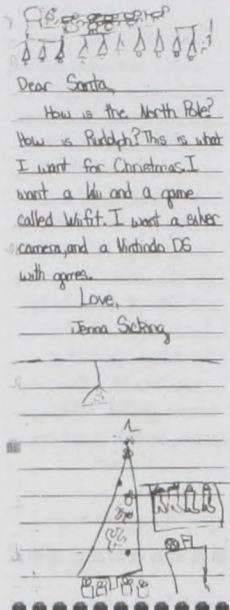 Dear Santa,
How is the North Pole?
How is Rudolph? This is what
I want for Christmas. I
want a Wii and a game
called Wiifit. I want a silver
camera, and a Nintindo DS
with games.
Love,
Jenna Sicking